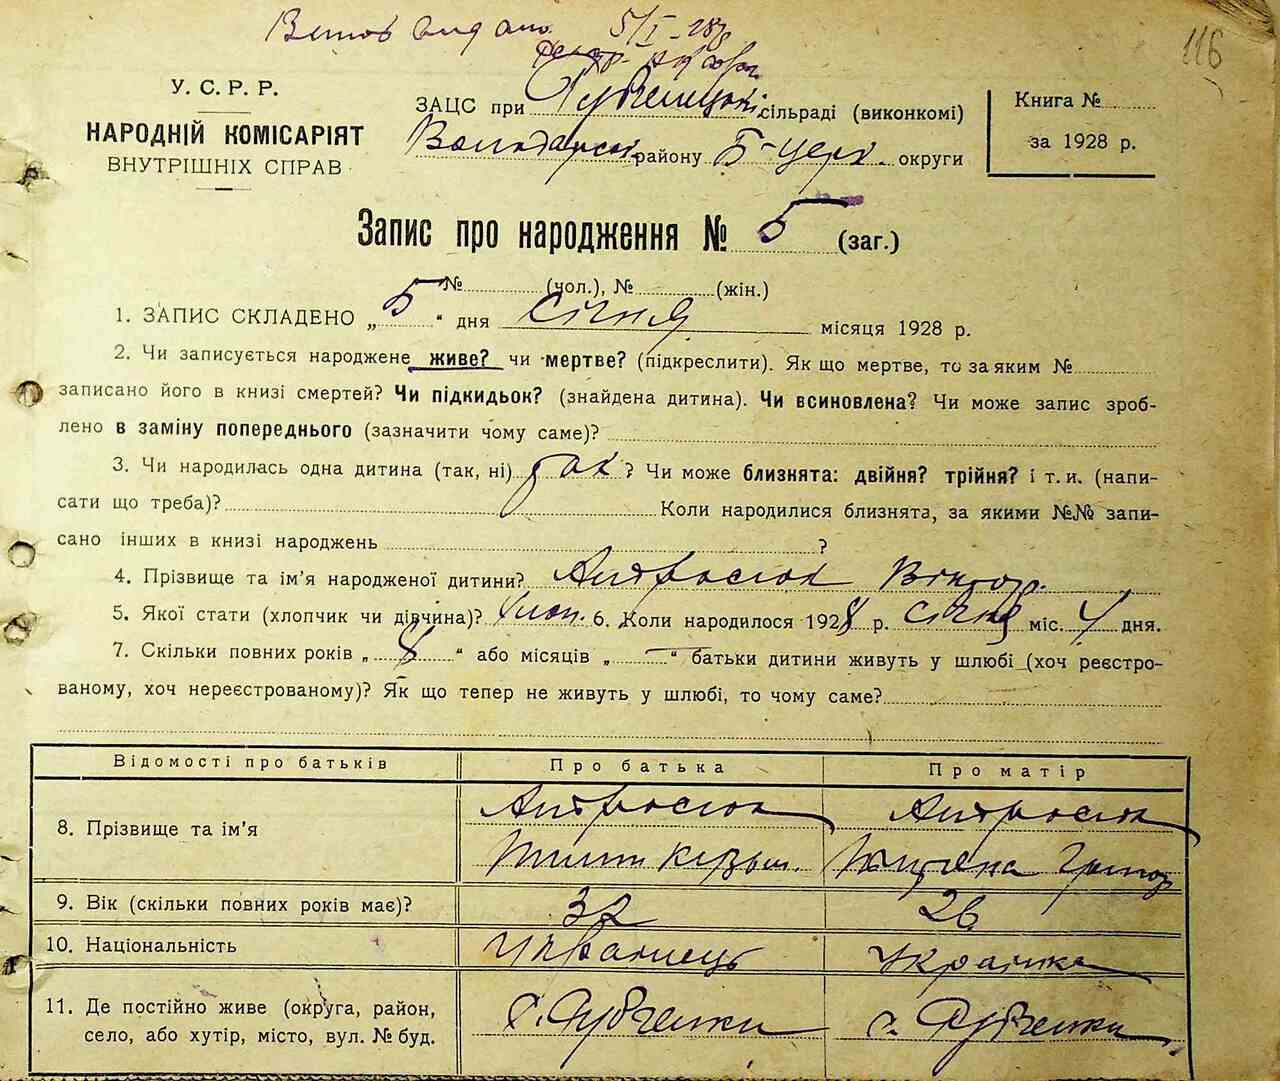 Витяг видано 5/I-28 р.
116
У. С. Р. Р.
НАРОДНІЙ КОМІСАРІЯТ
ВНУТРІШНІХ СПРАВ
ЗАЦС при сільраді (виконкомі)
Володарськ. району Б-Церк. округи
Книга №
за 1928 р.
Запис про народження № 5 (заг.)
№ (чол.), № (жін.)
1. ЗАПИС СКЛАДЕНО „5" дня Січня місяця 1928 р.
2. Чи записується народжене живе? чи мертве? (підкреслити). Як що мертве, то за яким №
записано його в книзі смертей? Чи підкидьок? (знайдена дитина). Чи всиновлена? Чи може запис зроб-
лено в заміну попереднього (зазначити чому саме)?
3. Чи народилась одна дитина (так, ні) так ? Чи може близнята: двійня? трійня? і т. и. (напи-
сати що треба)? Коли народилися близнята, за якими №№ запи-
сано інших в книзі народжень ?
4. Прізвище та ім'я народженої дитини? Антросюк Віктор.
5. Якої стати (хлопчик чи дівчина)? Хлоп. 6. Коли народилося 1928 р. січня міс. 4 дня.
7. Скільки повних років „8" або місяців „—" батьки дитини живуть у шлюбі (хоч реєстро-
ваному, хоч нереєстрованому)? Як що тепер не живуть у шлюбі, то чому саме?
Відомості про батьків Про батька Про матір
8. Прізвище та ім'я Антросюк Антросюк
Кузьм. Тетяна Григор
9. Вік (скільки повних років має)? 32 26
10. Національність Українець Українка
11. Де постійно живе (округа, район, с. Рубченки с. Рубченки
село, або хутір, місто, вул. № буд.